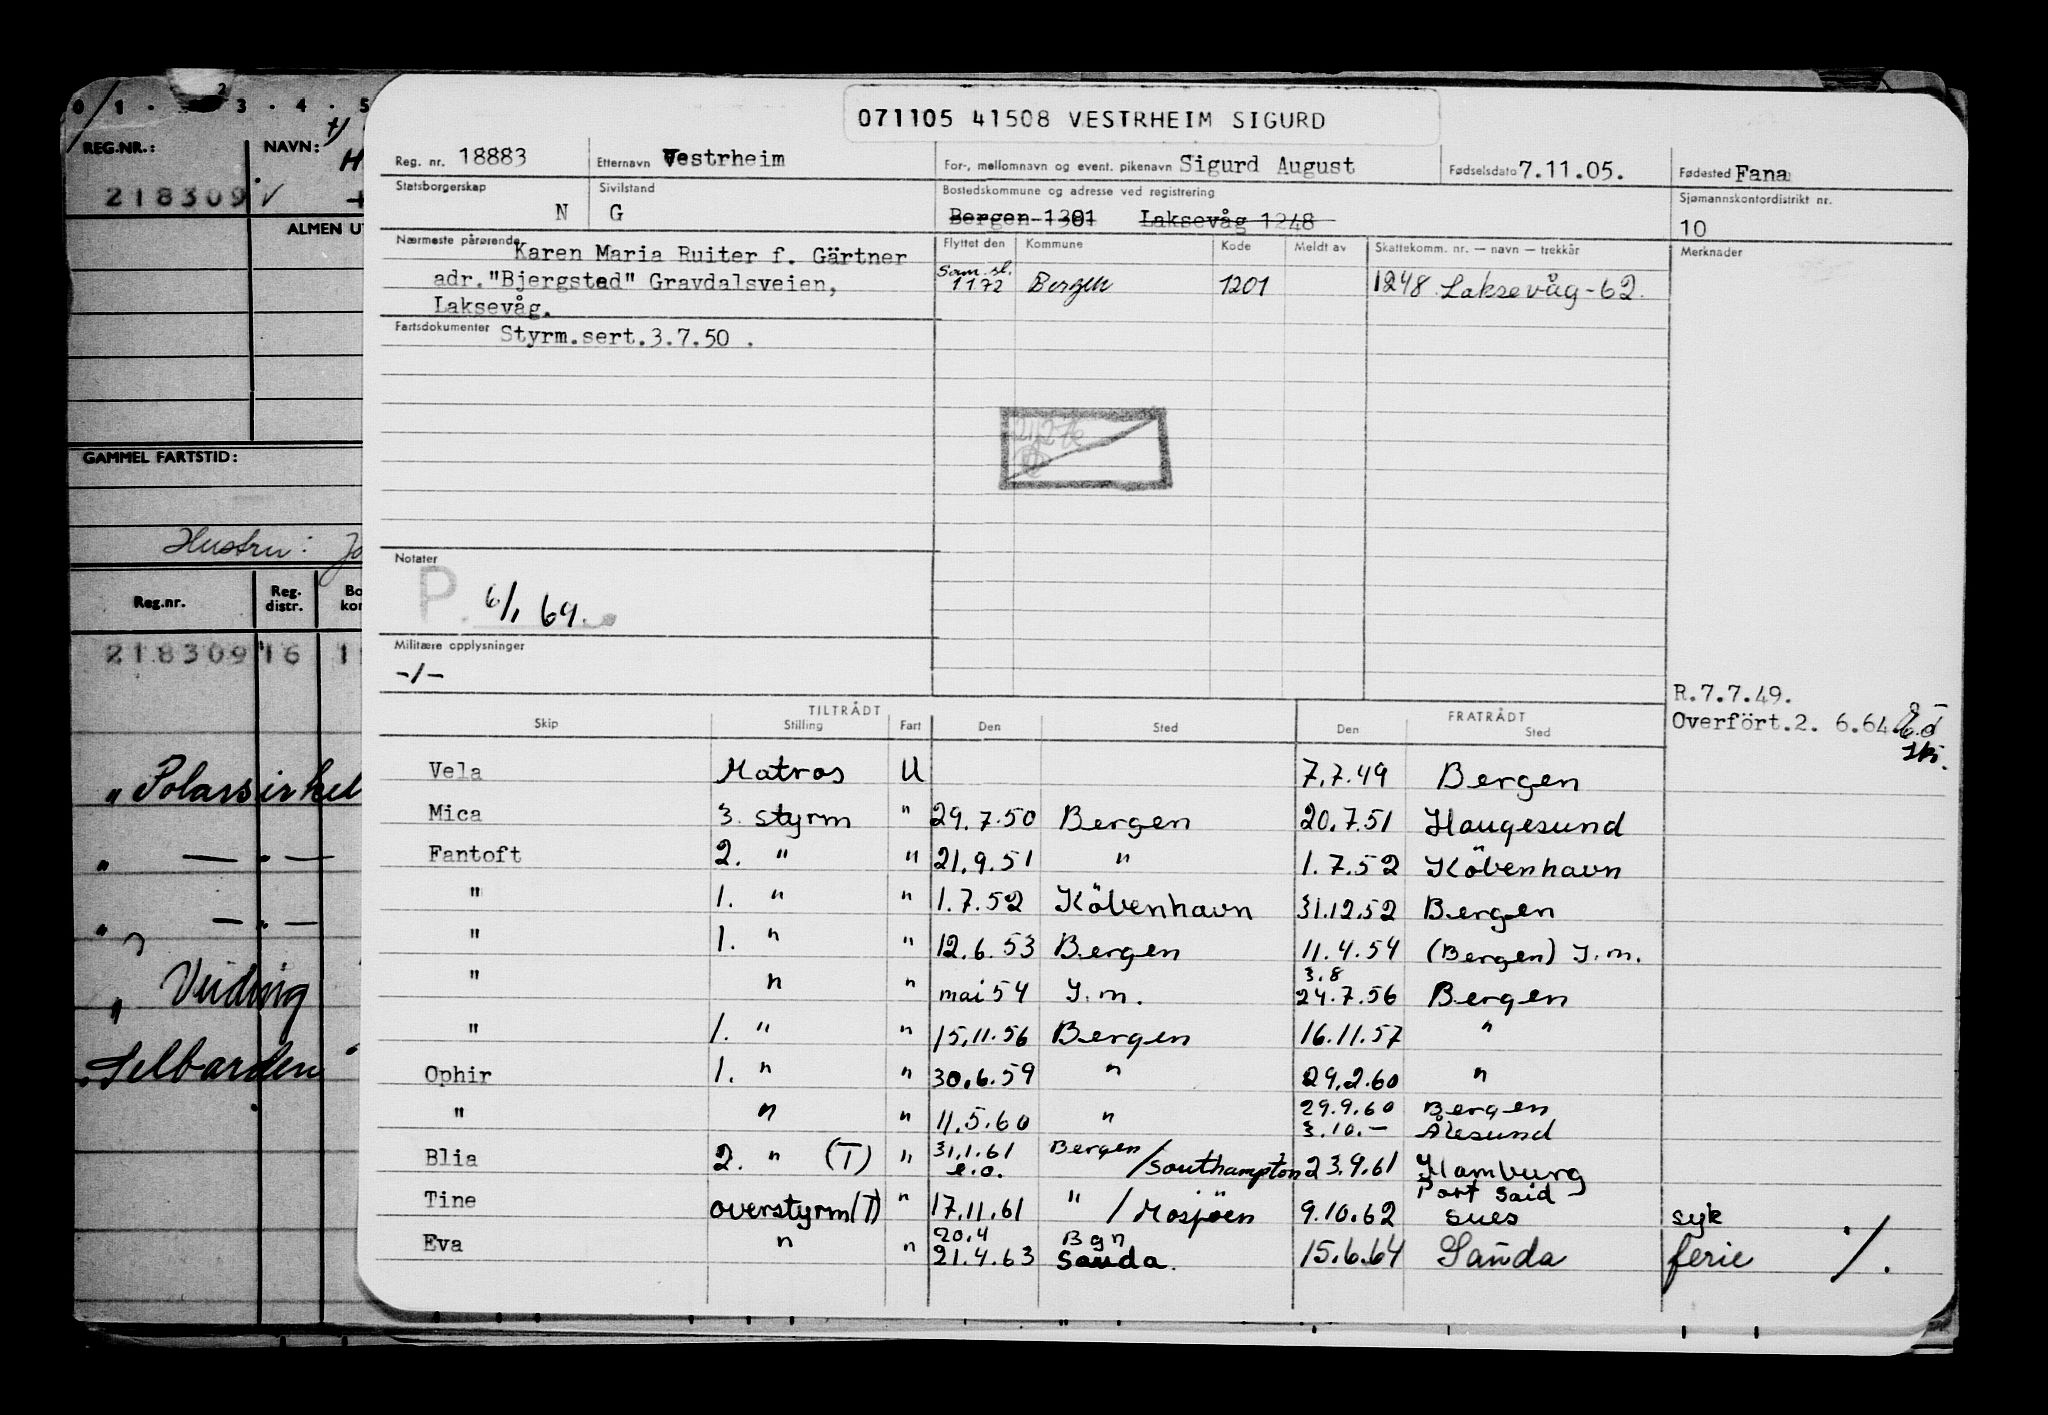 0 1 2 3 4 5
REG.NR.: NAVN:
218309
ALMEN
GAMMEL FARTSTID:
Hustru:
Reg.nr. Reg. distr.
218309 16
" Polarsirkel
" — " —
" — " —
" Veiding
" Selbarden
071105 41508 VESTRHEIM SIGURD
Reg. nr. 18883 Etternavn Vestrheim For-, mellomnavn og event. pikenavn Sigurd August Fødselsdato 7.11.05. Fødested Fana
Statsborgerskap N Sivilstand G Bostedskommune og adresse ved registrering Bergen 1301 Laksevåg 1248 Sjømannskontordistrikt nr. 10
Nærmeste pårørende Karen Maria Ruiter f. Gärtner
adr. "Bjergsted" Gravdalsveien,
Laksevåg.
Flyttet den Kommune Kode Meldt av Skattekomm. nr. — navn — trekkår Merknader
Sam. sl.
1172 Bergen 1201 1248 Laksevåg-62.
Fartsdokumenter Styrm.sert.3.7.50 .
Notater
P. 6/1 69.
Militære opplysninger
-/-
R.7.7.49.
Overfört.2. 6.64
TILTRÅDT FRATRÅDT
Skip Stilling Fart Den Sted Den Sted
Vela Matros U 7.7.49 Bergen
Mica 3. styrm " 29.7.50 Bergen 20.7.51 Haugesund
Fantoft 2. " " 21.9.51 " 1.7.52 Köbenhavn
" 1. " " 1.7.52 Köbenhavn 31.12.52 Bergen
" 1. " " 12.6.53 Bergen 11.4.54 (Bergen) I.m.
" " " mai 54 I.m. 3.8 24.7.56 Bergen
" 1. " " 15.11.56 Bergen 16.11.57 "
Ophir 1. " " 30.6.59 " 29.2.60 "
" " " 11.5.60 " 29.9.60 Bergen
3.10.- Ålesund
Blia 2. " (T) " 31.1.61 e.o. Bergen / Southampton 23.9.61 Hamburg
Tine overstyrm(T) " 17.11.61 " / Mosjöen 9.10.62 Port Said Sues syk
Eva " " 20.4 21.4.63 Bgn Sauda. 15.6.64 Sauda ferie ./.